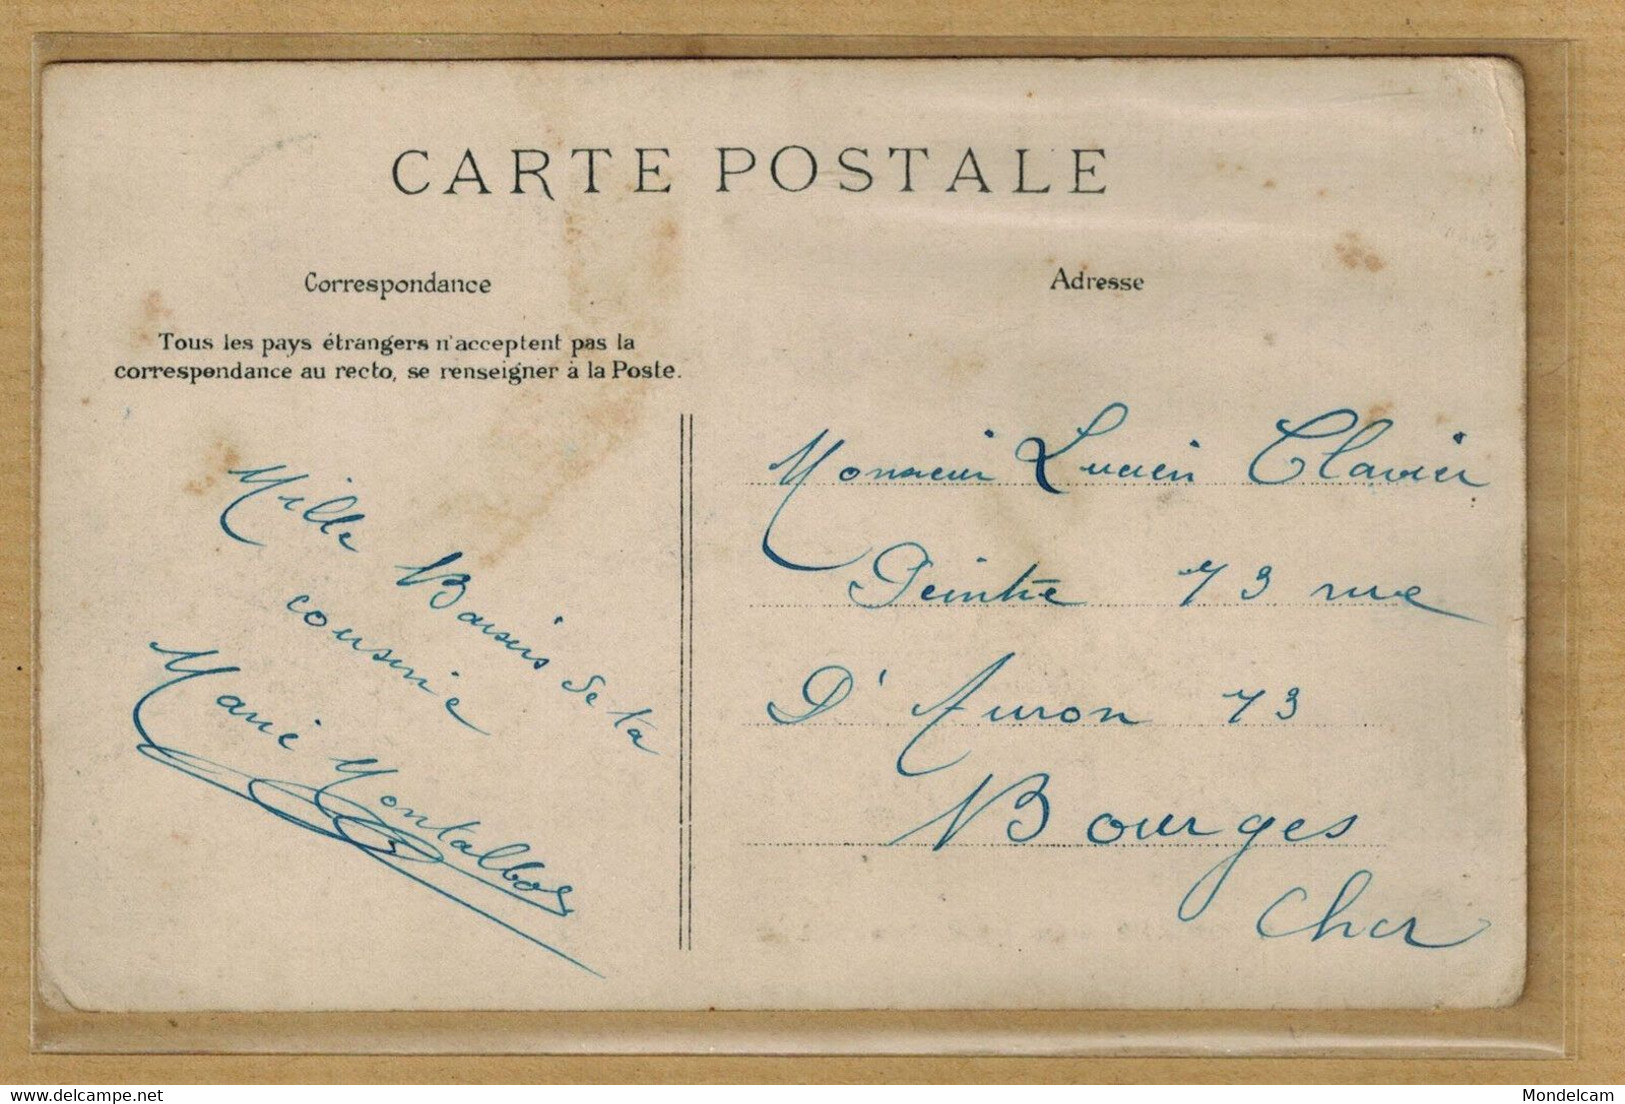 CARTE POSTALE
Correspondance
Tous les pays étrangers n'acceptent pas la
correspondance au recto, se renseigner à la Poste.
Mille Baisers de ta
cousine
Marie Montalbos
Adresse
Monsieur Lucien Clavier
Peintre 73 rue
D'Auron 73
Bourges
Cher
delcampe.net
Mondelcam